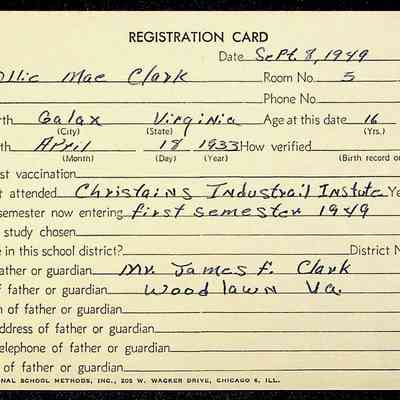 REGISTRATION CARD
Date Sept. 8, 1949
ollie Mae Clark Room No. 5
Phone No.
rth Galax Virginia Age at this date 16
(City) (State) (Yrs.)
th April 18 1933 How verified
(Month) (Day) (Year) (Birth record or
st vaccination
t attended Christains Industrail Instute Ye
semester now entering first semester 1949
study chosen
e in this school district? District N
ather or guardian Mr. James F. Clark
f father or guardian Woodlawn Va.
n of father or guardian
ddress of father or guardian
elephone of father or guardian
NAL SCHOOL METHODS, INC., 205 W. WACKER DRIVE, CHICAGO 6, ILL.